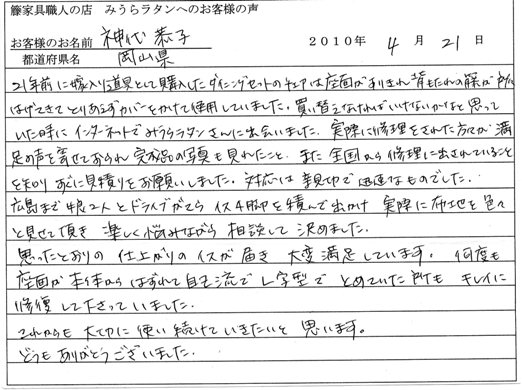 籐家具職人の店　みうらラタンへのお客様の声
お客様のお名前　神代 恭子　2010年 4月 21日
都道府県名　岡山県
21年前に嫁入り道具として購入したダイニングセットのチェアは座面がすりきれ背もたれの籐が所々
はげてきてとりあえずカバーをかけて使用していました。買い替えなければいけないかなと思って
いた時にインターネットでみうらラタンさんに出会いました。実際に修理をされた方々が満
足の声を寄せておられ完成品の写真も見れたこと、また全国から修理に出されていること
を知りすぐに見積りをお願いしました。対応は親切で迅速なものでした。
広島まで娘2人とドライブがてらイス4脚を積んで出かけ実際に布地を色々
と見せて頂き楽しく悩みながら相談して決めました。
思ったとおりの仕上がりのイスが届き大変満足しています。何度も
座面が本体からはずれて自己流でL字型でとめていた所もキレイに
修復して下さっていました。
これからも大切に使い続けていきたいと思います。
どうもありがとうございました。